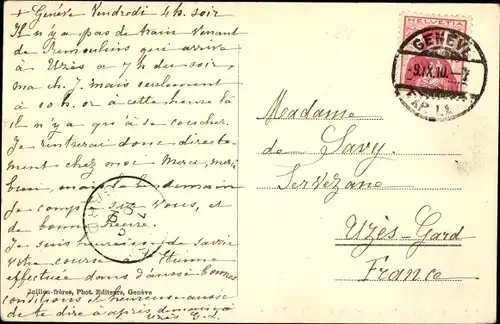 + Genève Vendredi 4 h. soir
Il n'y a pas de train venant
de Remoulins qui arrive
à Uzès à 7 h du soir,
ma ch. J. mais seulement
à 10 h. or à cette heure là
il n'y a qu'à se coucher.
Je rentrerai donc directe-
ment chez moi Merci, mer
bien, mais le demain
je compte sur vous, et
de bonne heure.
Je suis heureuse de savoir
votre course
effectuée dans d'aussi bonnes
conditions et heureuse aussi
de te dire à après demain
Uzès
Jullien frères, Phot. Editeurs, Genève
HELVETIA
GENÈVE
9.IX.10.-7
Madame
de Savy
Servezane
Uzès Gard
France